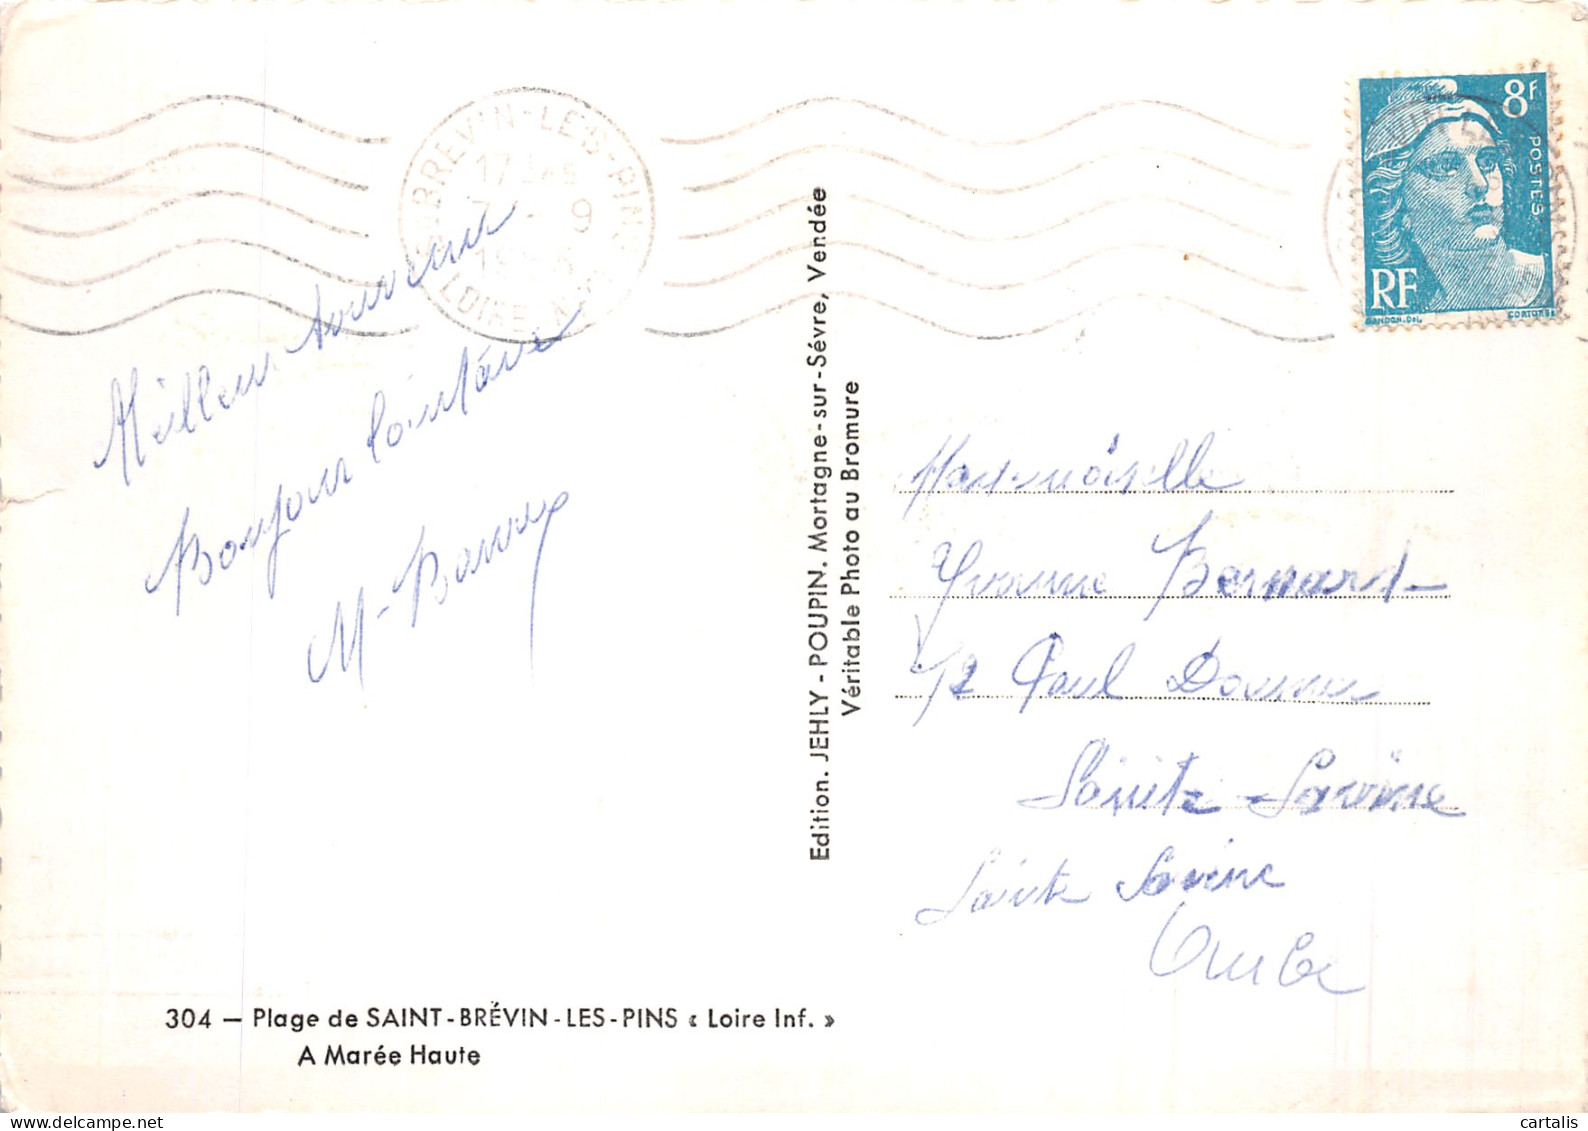 ST BREVIN-LES-PINS
17H45
7 - 9
LOIRE INF.
8F
POSTES
RF
GANDON.Del.
CORTOT.SC
Meilleur souvenir
Bonjour lointaine
M-
Edition. JEHLY - POUPIN. Mortagne-sur-Sévre, Vendée
Véritable Photo au Bromure
Mademoiselle
Yvonne Bernard
12 Paul Doumer
Sainte-Savine
Sainte Savine
Aube
304 — Plage de SAINT-BRÉVIN-LES-PINS « Loire Inf. »
A Marée Haute
cartalis